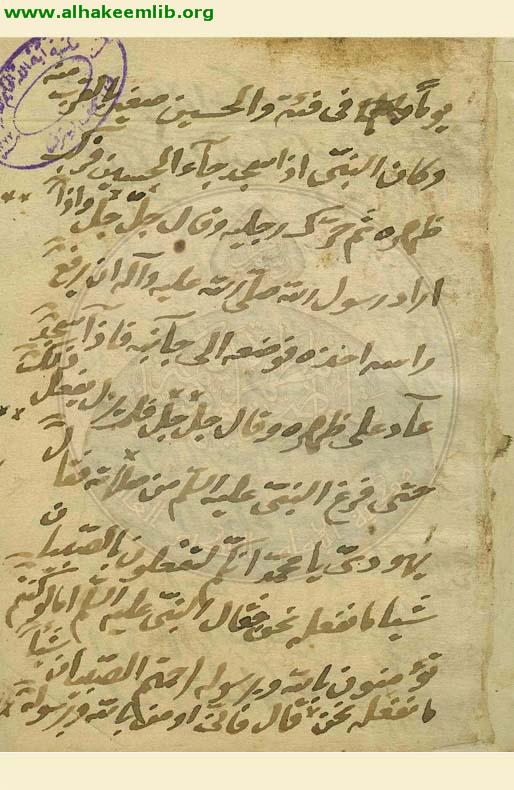 www.alhakeemlib.org
يوماً في فئة والحسين صغير بالقرب منه
وكان النبي اذا سجد جآء الحسين فركب
ظهره ثم حرّك رجليه وقال حل حل واذا
اراد رسول الله صلى الله عليه وآله ان يرفع
راسه اخذه فوضعه الى جانبه فاذا سجد
عاد على ظهره وقال حل حل فلم يزل يفعل ذلك
حتى فرغ النبي عليه السلم من صلاته فقال
يهودي يا محمد انكم لتفعلون بالصبيان
شيئا ما نفعله نحن فقال النبي عليه السلم اما لو كنتم
تؤمنون بالله وبرسوله لرحمتم الصبيان شيئاً
ما نفعله نحن قال فاني اومن بالله وبرسوله